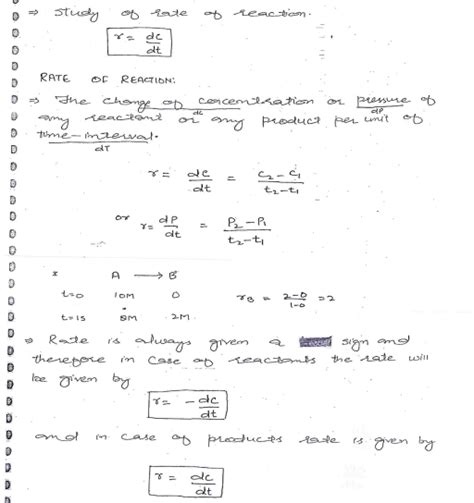 ⇒ Study of rate of reaction.
r = dc/dt
RATE OF REACTION:
⇒ The change of concentration or pressure of
dc dP
any reactant or any product per unit of
time-interval.
dT
r = dc/dt = C2-C1/t2-t1
or r = dP/dt = P2-P1/t2-t1
* A → B
t=0 10M 0 rB = 2-0/1-0 = 2
t=1s 8M 2M
⇒ Rate is always given a sign and
therefore in case of reactants the rate will
be given by
r = -dc/dt
and in case of products rate is given by
r = dc/dt